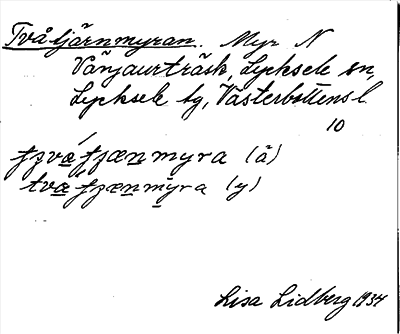 Tvåtjärnmyran. Myr N
Vänjaurträsk, Lycksele sn,
Lycksele tg, Västerbottens l.
10
myra (ä)
myra (y)
Lisa Lidberg 1934